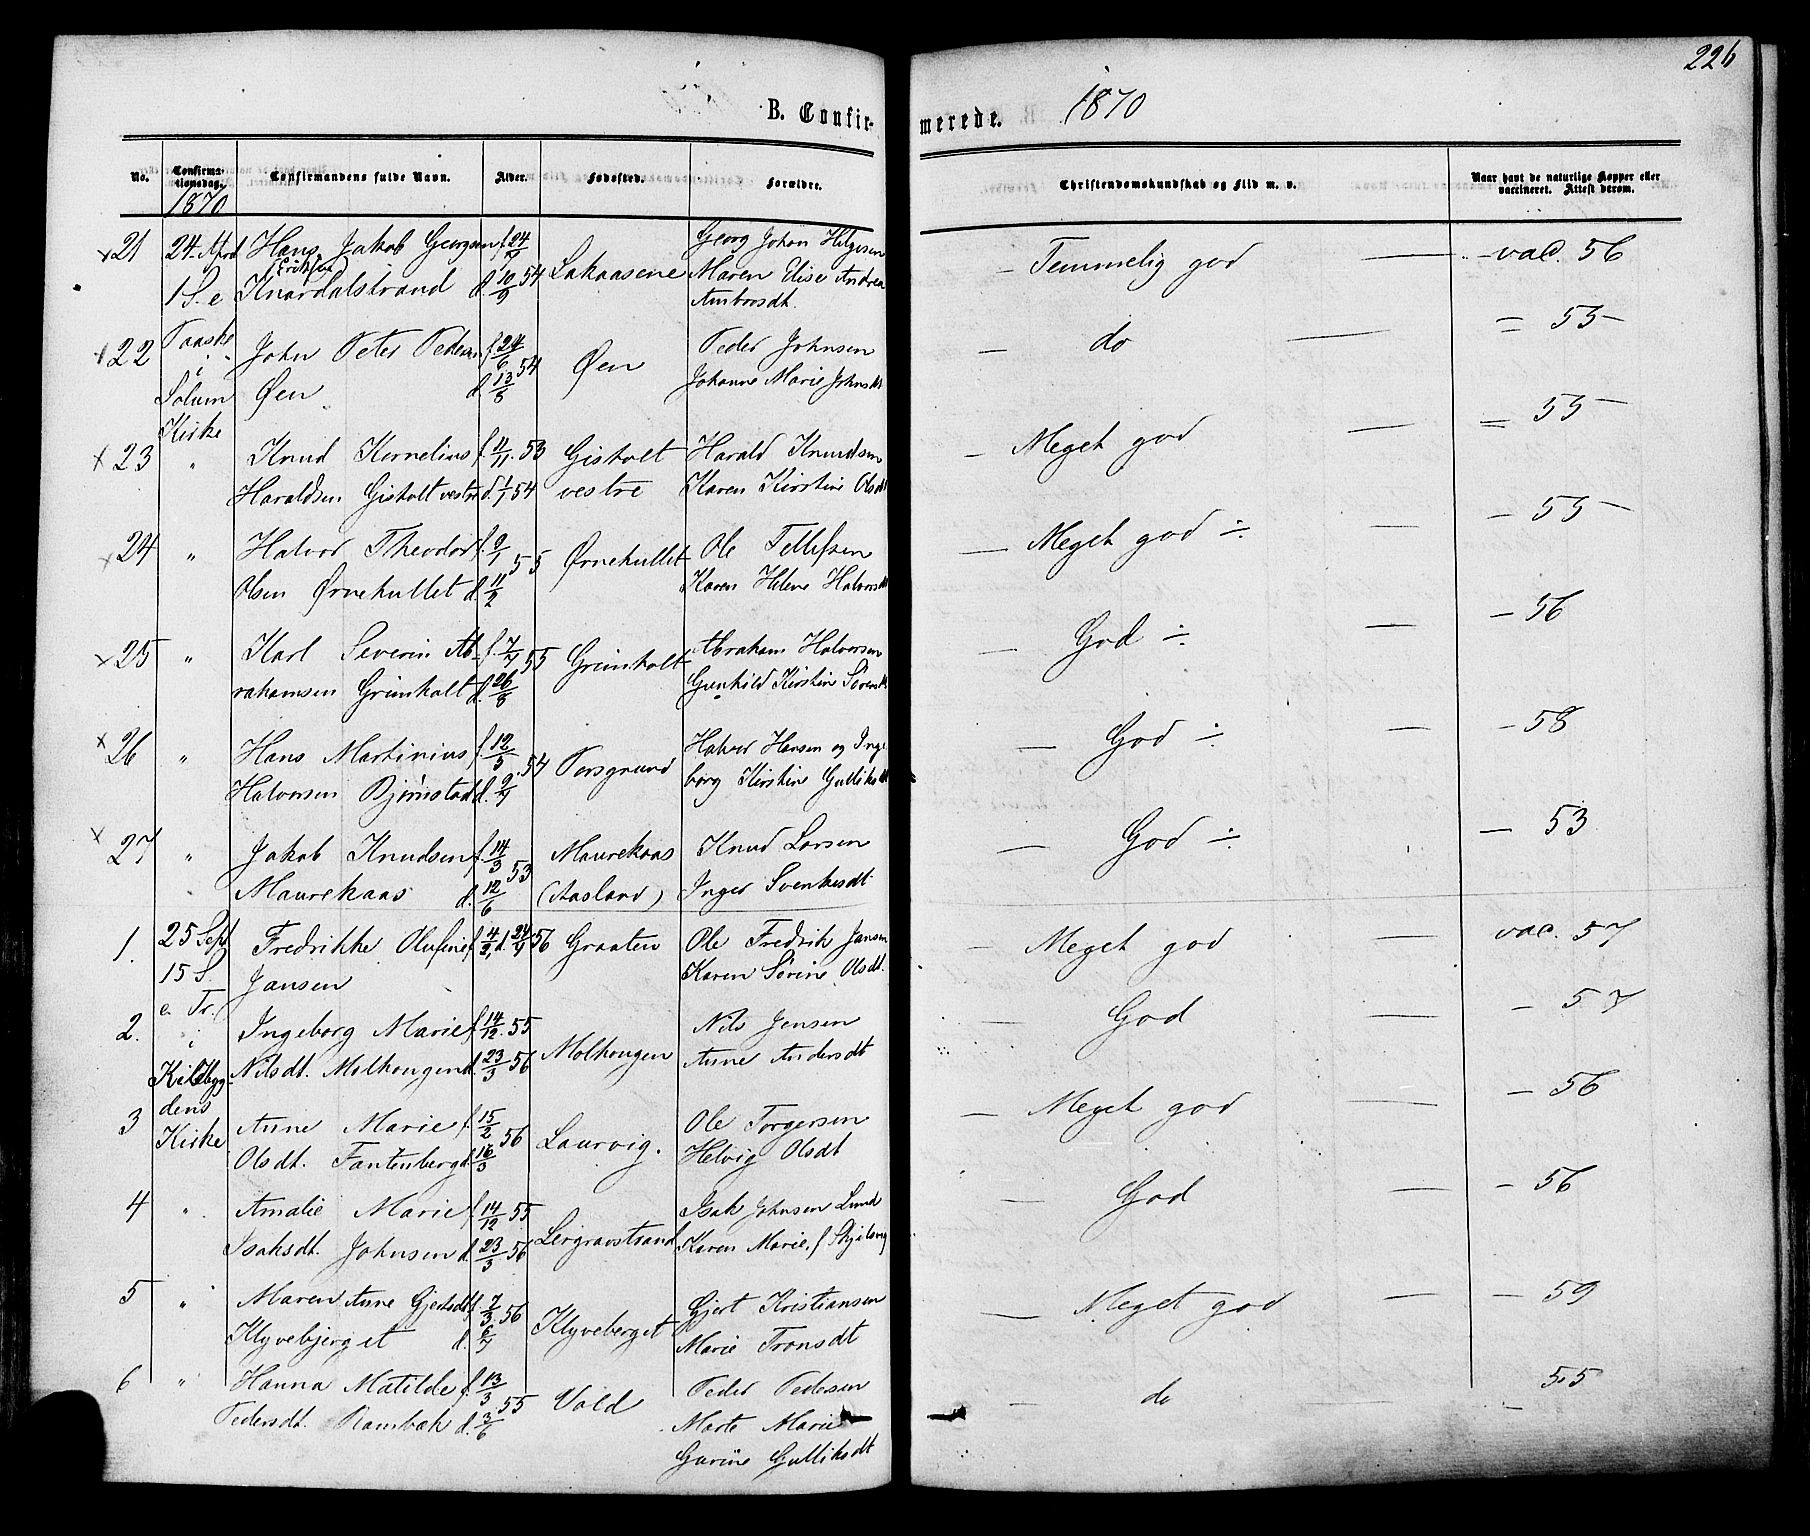 226
B. Confirmerede. 1870
No.
Confirmationsdag. 1870
Confirmandens fulde Navn.
Alder.
Fødested.
Forældre.
Christendomskundskab og Flid m. v.
Naar havt de naturlige Kopper eller vaccineret. Attest derom.
21 24 April Hans Jakob Georgsen f. 24/7 Georg Johan Helgesen
1 S. e Knardalstrand d. 10/9 54 Lakaasene Maren Elise Andrea
Ambrosdt.
Temmelig god — vac. 56
22 Paaske John Peter Pedersen f. 24/6 54 Øen Peder Johnsen
i Solum Øen d. 13/8 Johanne Marie Johnsdt
Kirke
— do — = 55
23 " Knud Kornelius f. 11/11 53 Gisholt Harald Knudsen
Haraldsen Gisholt vestre d. 1/1 54 vestre Karen Kirstine Olsdt
— Meget god — = 55
24 " Halvor Theodor f. 9/1 55 Ørnehullet Ole Tellefsen
Olsen Ørnehullet d. 11/2 Karen Helene Halvorsdt
— Meget god ÷ — 55
25 " Karl Severin Ab- f. 7/7 55 Grimholt Abraham Halvorsen
rahamsen Grimholt d. 26/8 Gunhild Kirstine Sörensdt
— God ÷ — 56
26 " Hans Martinius f. 12/5 54 Porsgrund Halvor Hansen og Inge
Halvorsen Bjørnstad d. 9/7 borg Kirstine Gulliksdt
— God ÷ — 58
27 " Jakob Knudsen f. 14/3 53 Maurekaas Knud Larsen
Maurekaas d. 12/6 (Aasland) Inger Svenkesdt
— God ÷ — 53
1. 25 Sept Fredrikke Olufine f. 4/2 d. 24/4 56 Graaten Ole Fredrik Jansen
15 S. Jansen Karen Sörine Olsdt.
e. Tr.
— Meget god — vac. 57
2. i Ingeborg Marie f. 14/12 55 Molhougen Nils Jensen
Kilebyg- Nilsdt. Molhougen d. 23/3 56 Anne Andersdt
— God — 57
dens
3 Kirke Anne Marie f. 15/2 56 Laurvig. Ole Torgersen
Olsdt. Fantenberg d. 16/3 Helvig Olsdt
— Meget god — 56
4 " Amalie Marie f. 14/12 55 Lergravstrand Isak Johnsen Lund
Isaksdt. Johnsen d. 23/3 56 Karen Marie f Skjelsvig
— God — 56
5 " Maren Anne Gjertsdt f. 7/3 56 Klyveberget Gjert Kristiansen
Klyvebjerget d. 6/7 Marie Tronsdt
— Meget god — 59
6 " Hanna Matilde f. 13/3 55 Vold Peder Pedersen
Pedersdt. Rambæk d. 3/6 Marte Marie
Gurine Gulliksdt
— do — 55